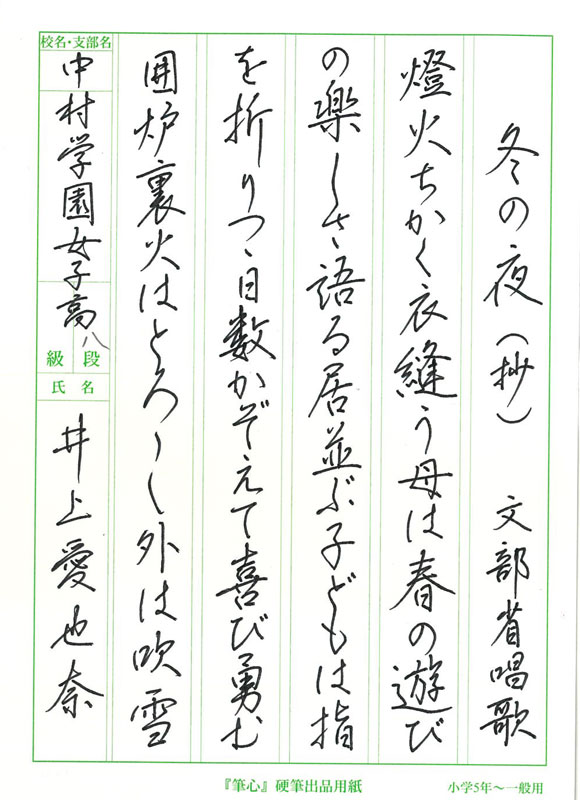 冬の夜(抄) 文部省唱歌
燈火ちかく衣縫う母は春の遊び
の楽しさ語る居並ぶ子どもは指
を折りつゝ日数かぞえて喜び勇む
囲炉裏火はとろ〳〵外は吹雪
校名・支部名
中村学園女子高
八
級 段
氏名
井上愛也奈
『筆心』硬筆出品用紙
小学5年〜一般用